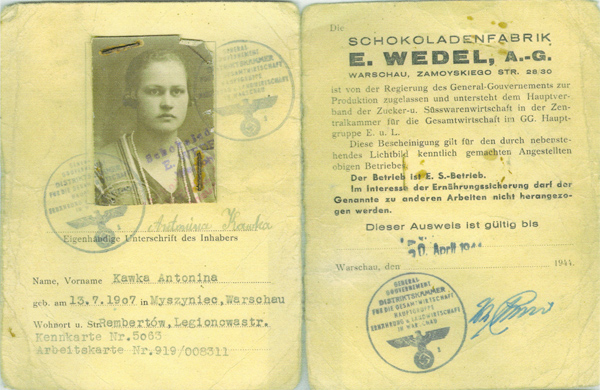 Antonina Kawka
Eigenhändige Unterschrift des Inhabers
Name, Vorname Kawka Antonina
geb. am 13.7.1907 in Myszyniec, Warschau
Wohnort u. Str. Rembertów, Legionowastr.
Kennkarte Nr. 5063
Arbeitskarte Nr. 919/008311
GENERAL
GOUVERNEMENT
DISTRIKTSKAMMER
FÜR DIE GESAMTWIRTSCHAFT
HAUPTGRUPPE
ERNÄHRUNG u. LANDWIRTSCHAFT
IN WARSCHAU
Die
SCHOKOLADENFABRIK
E. WEDEL, A.-G.
WARSCHAU, ZAMOYSKIEGO STR. 28/30
ist von der Regierung des General-Gouvernements zur
Produktion zugelassen und untersteht dem Hauptver-
band der Zucker-u. Süsswarenwirtschaft in der Zen-
tralkammer für die Gesamtwirtschaft im GG. Haupt-
gruppe E. u. L.
Diese Bescheinigung gilt für den durch neberste-
hendes Lichtbild kenntlich gemachten Angestellten
obigen Betriebes
Der Betrieb ist E. S.-Betrieb.
Im Interesse der Ernährungssicherung darf der
Genannte zu anderen Arbeiten nicht herangezo-
gen werden.
Dieser Ausweis ist gültig bis
April
Warschau, den 1944.
GENERAL
GOUVERNEMENT
DISTRIKTSKAMMER
FÜR DIE GESAMTWIRTSCHAFT
HAUPTGRUPPE
ERNÄHRUNG u. LANDWIRTSCHAFT
IN WARSCHAU